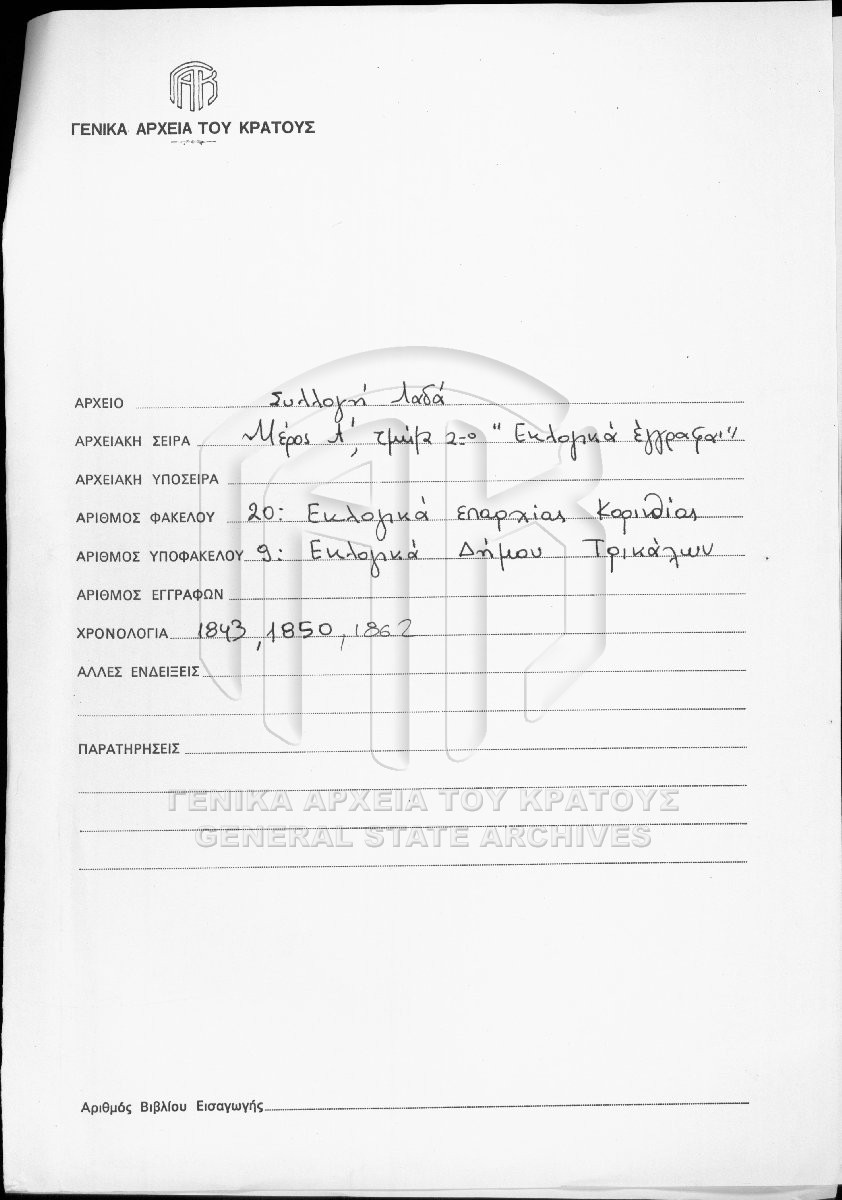 ΓΑΚ
ΓΕΝΙΚΑ ΑΡΧΕΙΑ ΤΟΥ ΚΡΑΤΟΥΣ
ΑΡΧΕΙΟ Συλλογή Λαδά
ΑΡΧΕΙΑΚΗ ΣΕΙΡΑ Μέρος Α', τμήμα 2-ο "Εκλογικά έγγραφα"
ΑΡΧΕΙΑΚΗ ΥΠΟΣΕΙΡΑ
ΑΡΙΘΜΟΣ ΦΑΚΕΛΟΥ 20: Εκλογικά επαρχίας Κορινθίας
ΑΡΙΘΜΟΣ ΥΠΟΦΑΚΕΛΟΥ 9: Εκλογικά Δήμου Τρικάλων
ΑΡΙΘΜΟΣ ΕΓΓΡΑΦΩΝ
ΧΡΟΝΟΛΟΓΙΑ 1843, 1850, 1862
ΑΛΛΕΣ ΕΝΔΕΙΞΕΙΣ
ΠΑΡΑΤΗΡΗΣΕΙΣ
ΓΕΝΙΚΑ ΑΡΧΕΙΑ ΤΟΥ ΚΡΑΤΟΥΣ
GENERAL STATE ARCHIVES
Αριθμός Βιβλίου Εισαγωγής